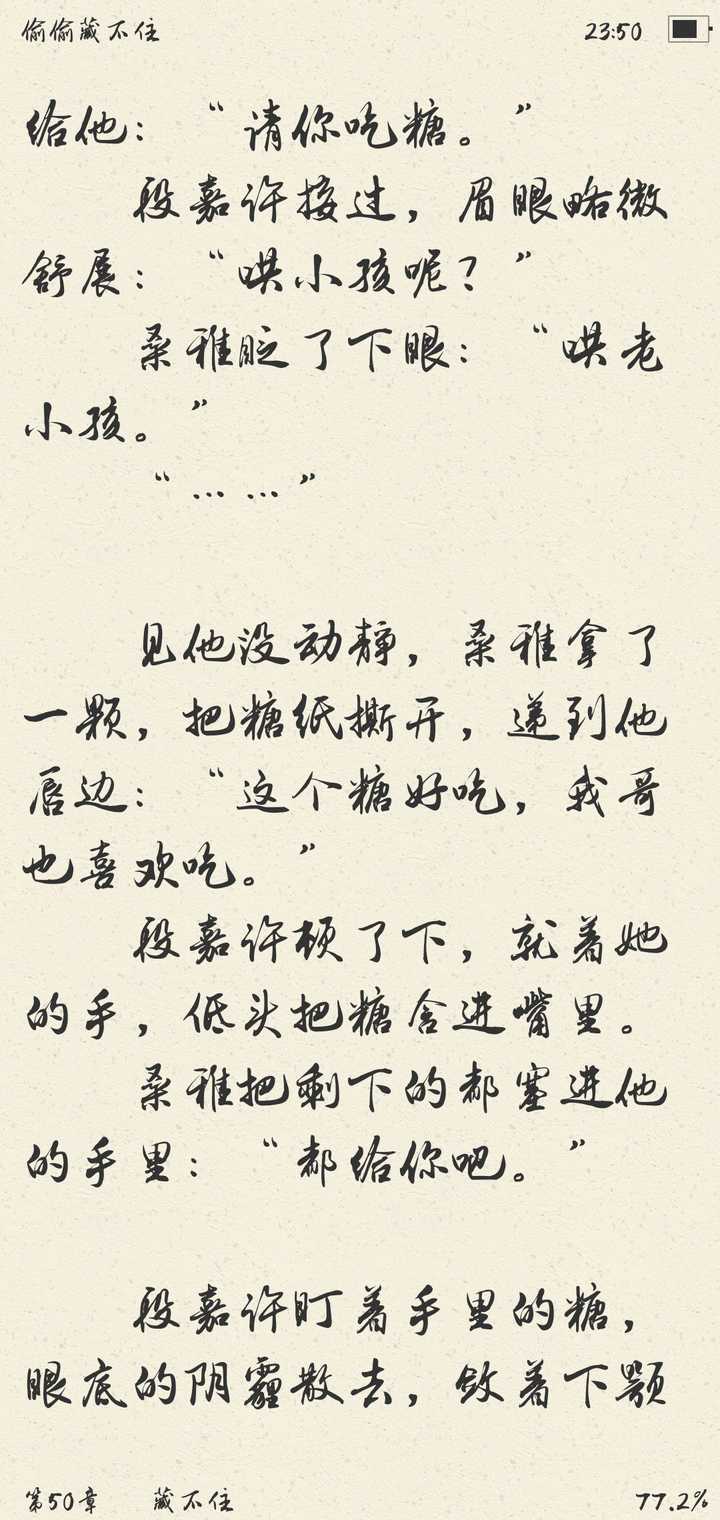 偷偷藏不住 23:50
给他：“请你吃糖。”
段嘉许接过，眉眼略微
舒展：“哄小孩呢？”
桑稚眨了下眼：“哄老
小孩。”
“……”
见他没动静，桑稚拿了
一颗，把糖纸撕开，递到他
唇边：“这个糖好吃，我哥
也喜欢吃。”
段嘉许顿了下，就着她
的手，低头把糖含进嘴里。
桑稚把剩下的都塞进他
的手里：“都给你吧。”
段嘉许盯着手里的糖，
眼底的阴霾散去，敛着下颚
第50章 藏不住 77.2%